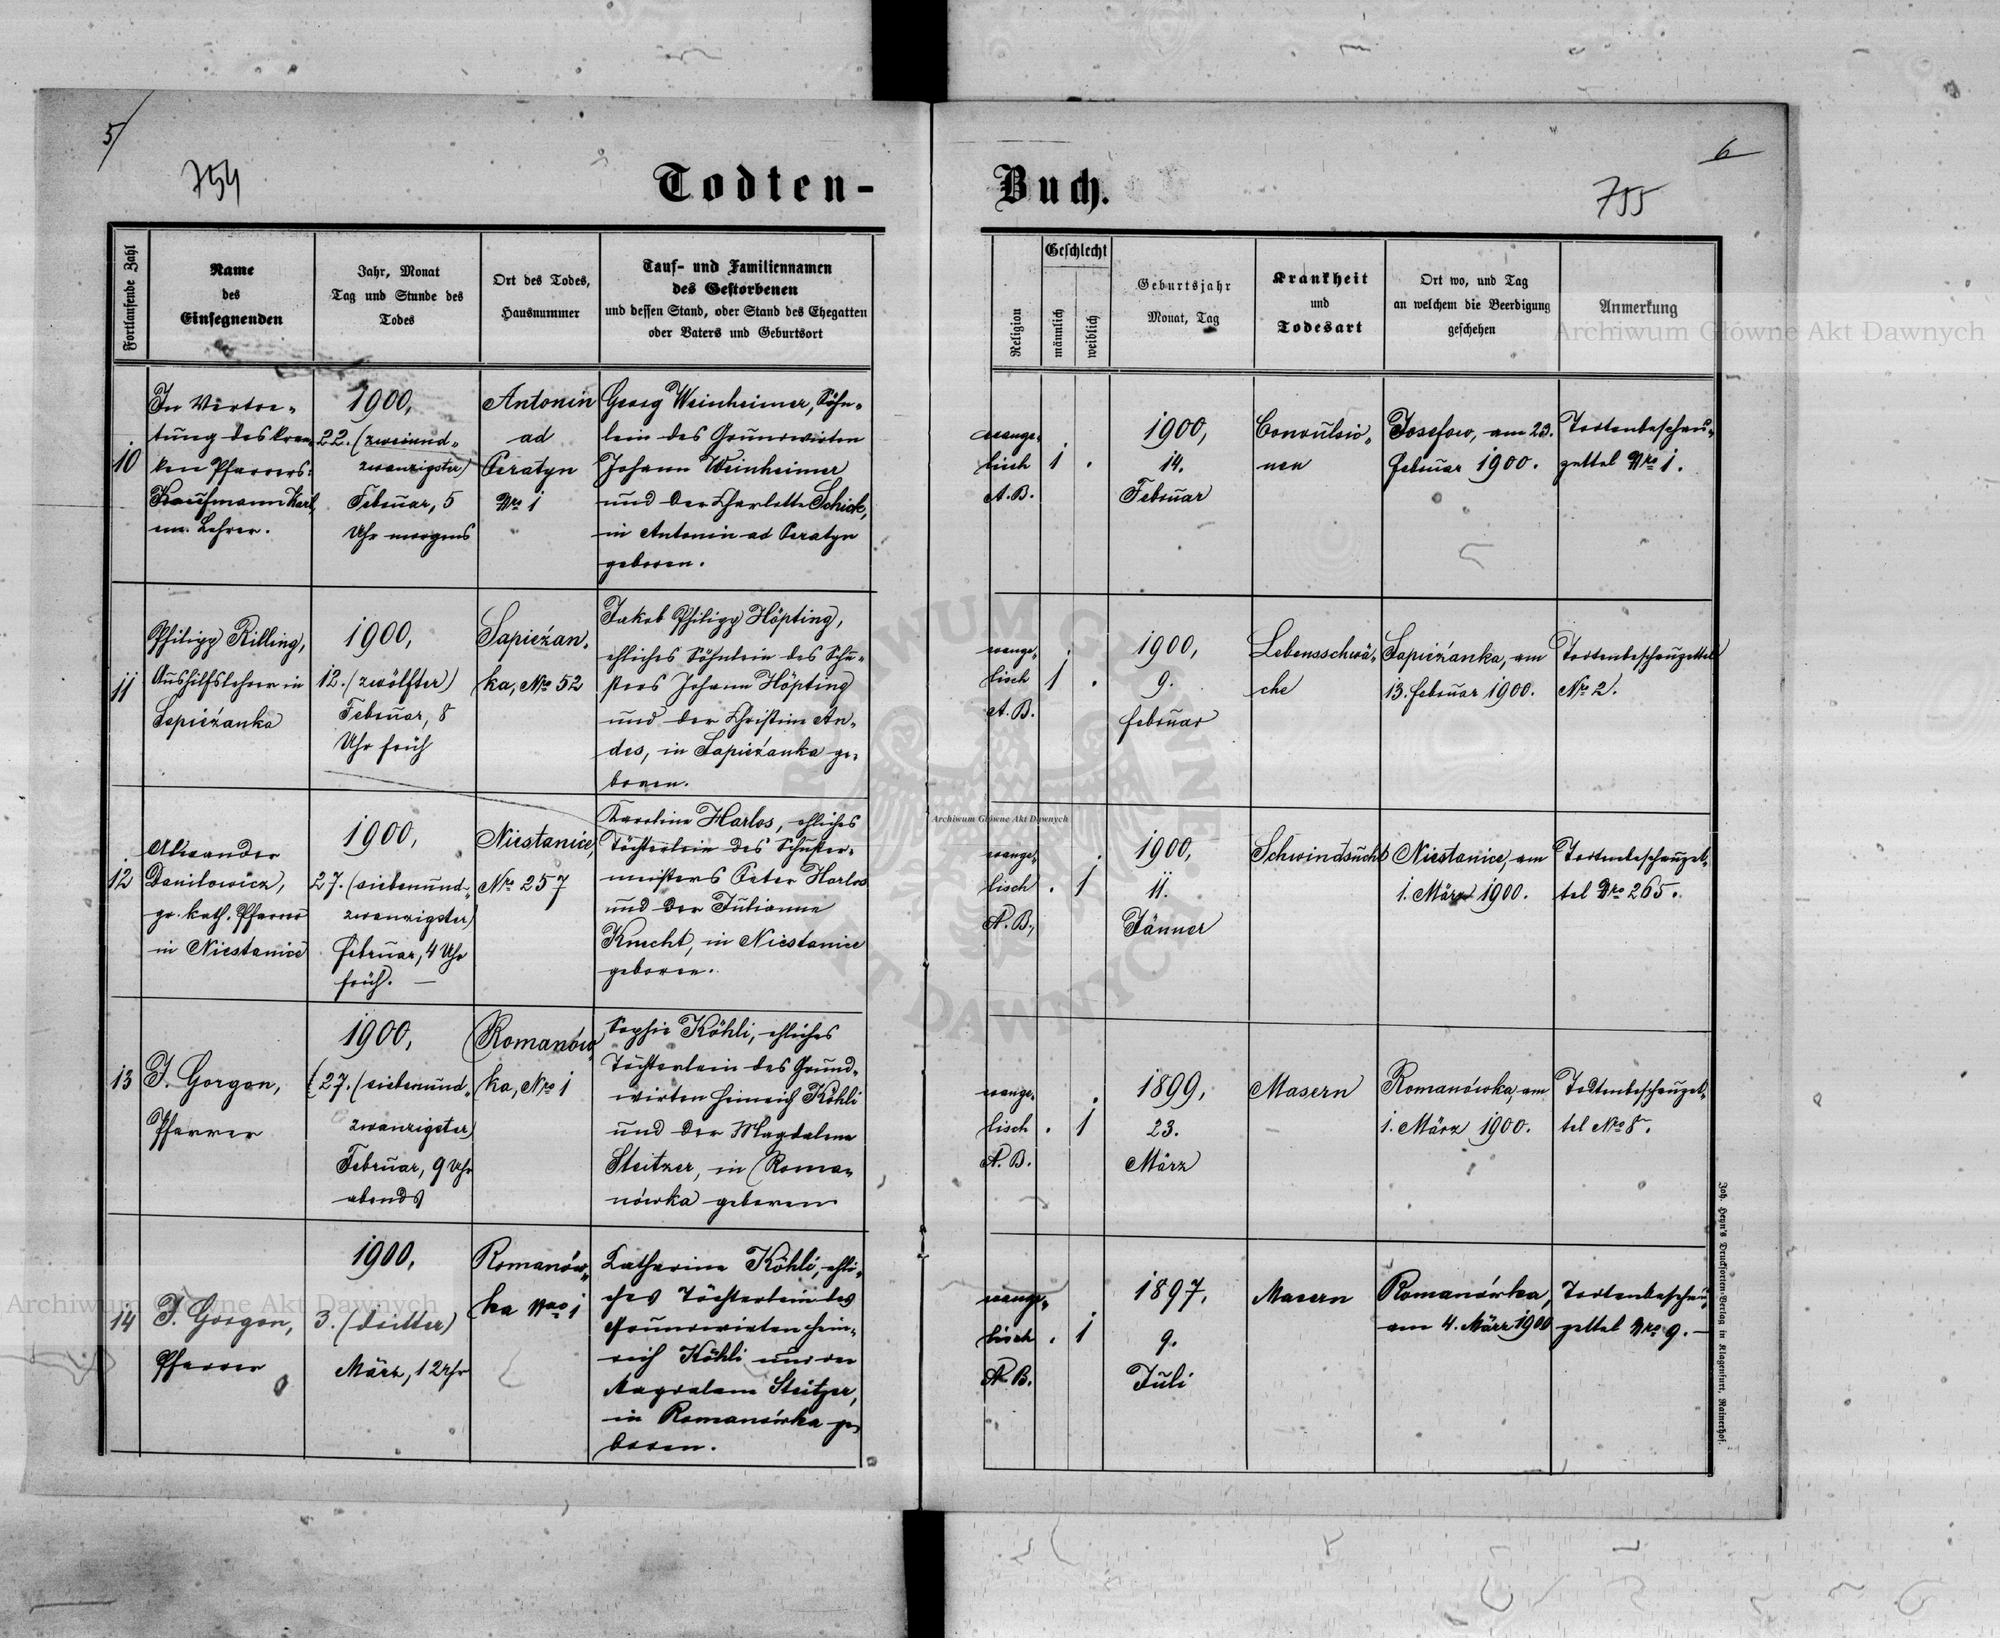 5/
6
754
755
Todten-
Buch.
Fortlaufende Zahl
Name
des
Einsegnenden
Jahr, Monat
Tag und Stunde des
Todes
Ort des Todes,
Hausnummer
Tauf- und Familiennamen
des Gestorbenen
und dessen Stand, oder Stand des Ehegatten
oder Vaters und Geburtsort
Religion
Geschlecht
männlich
weiblich
Geburtsjahr
Monat, Tag
Krankheit
und
Todesart
Ort wo, und Tag
an welchem die Beerdigung
geschehen
Anmerkung
10
In Vertre-
tung des kran-
ken Pfarrers:
Kaufmann Karl,
em. Lehrer.
1900,
22. (zweiund-
zwanzigster)
Februar, 5
Uhr morgens
Antonin
ad
Peratyn
Nro 1
Georg Weinheimer, Söhn-
lein des Grundwirten
Johann Weinheimer
und der Charlotte Schick,
in Antonin ad Peratyn
geboren.
evange-
lisch
A. B.
1
1900,
14.
Februar
Convulsio-
nen
Josefow, am 23.
Februar 1900.
Todtenbeschau-
zettel Nro 1.
11
Philipp Rilling,
Aushilfslehrer in
Sapieżanka
1900,
12. (zwölfter)
Februar, 8
Uhr früh
Sapieżan-
ka, No 52
Jakob Philipp Höpting,
ehliches Söhnlein des Schu-
sters Johann Höpting
und der Christine An-
des, in Sapieżanka ge-
boren.
evange-
lisch
A. B.
1
1900,
9.
Februar
Lebensschwä-
che
Sapieżanka, am
13. Februar 1900.
Todtenbeschauzettel
No 2.
12
Alexander
Daniłowicz,
gr. kath. Pfarrer
in Niestanice
1900,
27. (siebenund-
zwanzigster)
Februar, 4 Uhr
früh. —
Niestanice,
No 257
Karoline Harlos, ehliches
Töchterlein des Schuster-
meisters Peter Harlos
und der Julianne
Knecht, in Niestanice
geboren.
evange-
lisch
A. B.,
1
1900,
11.
Jänner
Schwindsucht
Niestanice, am
1. März 1900.
Todtenbeschauzet-
tel Nro 265.
13
J. Gorgon,
Pfarrer
1900,
27. (siebenund-
zwanzigster)
Februar, 9 Uhr
abends
Romanów-
ka, Nro 1
Sophie Köhli, ehliches
Töchterlein des Grund-
wirten Heinrich Köhli
und der Magdalena
Steitzer, in Roma-
nówka geboren
evange-
lisch
A. B.
1
1899,
23.
März
Masern
Romanówka, am
1. März 1900.
Todtenbeschauzet-
tel No 8.
14
J. Gorgon,
Pfarrer
1900,
3. (dritter)
März, 1 Uhr
Romanów-
ka Nro 1
Katharine Köhli, ehli-
ches Töchterlein des
Grundwirten Hein-
rich Köhli und der
Magdalena Steitzer,
in Romanówka ge-
boren.
evange-
lisch
A. B.
1
1897,
9.
Juli
Masern
Romanówka,
am 4. März 1900
Todtenbeschau-
zettel Nro 9. —
Joh. Heyn's Drucksorten-Verlag in Klagenfurt, Rainerhof.
Archiwum Główne Akt Dawnych
Archiwum Główne Akt Dawnych
Archiwum Główne Akt Dawnych
ARCHIWUM GŁÓWNE AKT DAWNYCH